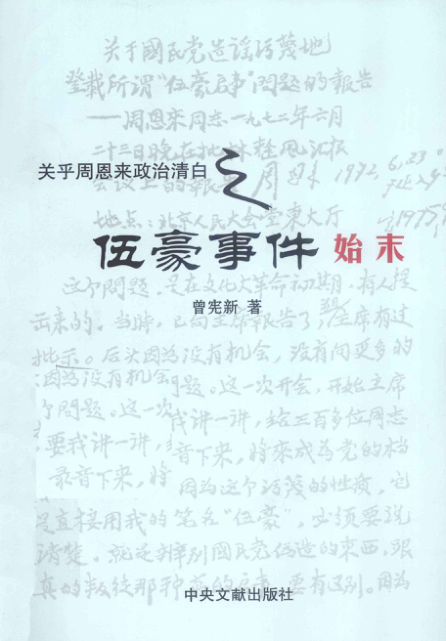 关于國民党造谣污蔑地
登載所谓“伍豪启事”问题的報告
——周恩来同志一九七二年六月
二十三日晚在批林整风汇报
关乎周恩来政治清白之
会议上的報告 周恩来 1972.6.23.
地点：北京人民大会堂东大厅 1975
伍豪事件 始末
这个问题，是在文化大革命初期，有人提
曾宪新 著
出来的。当時，已向主席報告了，主席有过
批示。后来因为没有机会，没有向更多的
因为没有机会 问题。这一次开会，开始主席
问题。这一次 我讲一讲，给三百多位同志
要我讲一讲， 音下来，將來成为党的档
录音下来，将 因为这个污蔑的性质，它
是直接用我的笔名“伍豪”，必须要说
清楚。就是辨别國民党伪造的東西，跟
真的叛徒那种 启事，要有区别。因为
中央文献出版社